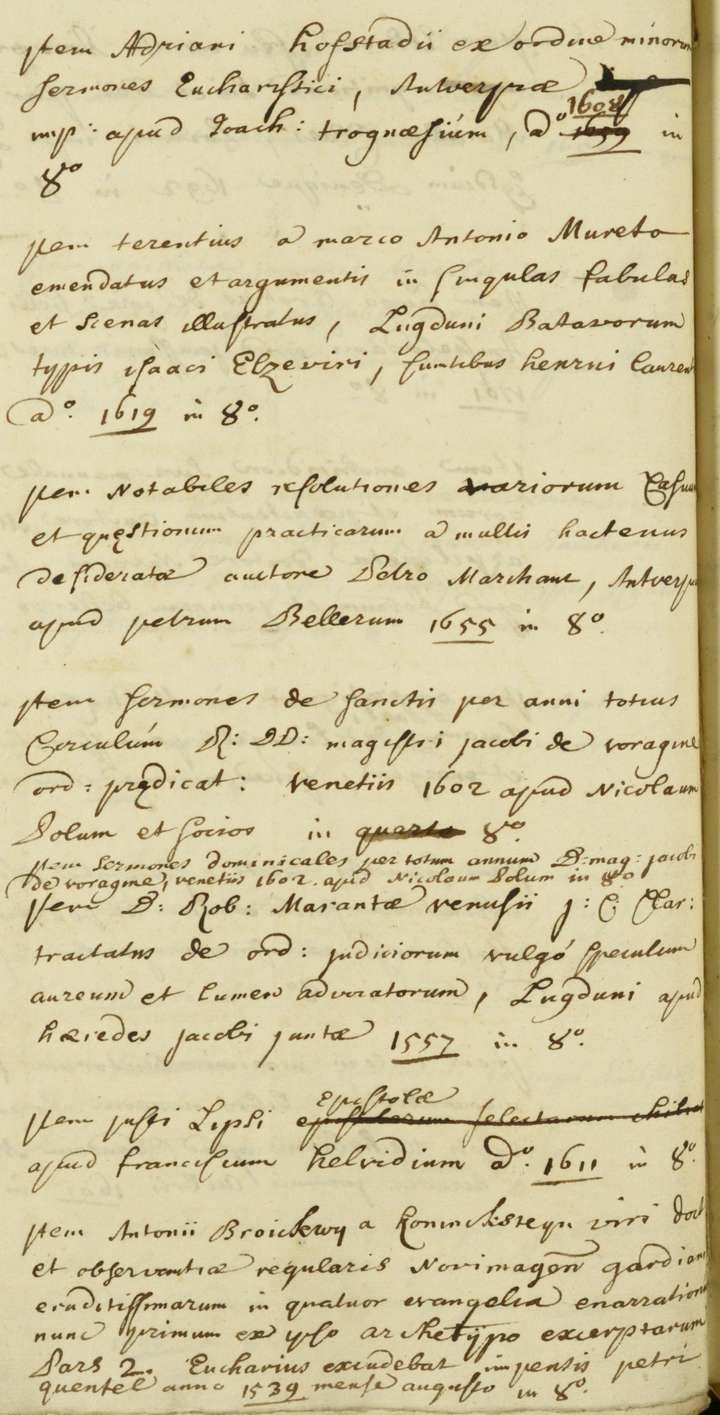 jtem Adriani hofstadii ex ordine minorum
sermones Eucharistici, Antverpiæ
imp: apud Joach: trognæsiúm, aº 1608 in
8º
jtem terentius a marco Antonio Mureto
emendatus et argumentis in singulas fabulas
et scenas illustratus, Lugduni Batavorum
typis isaaci Elzeviri, sumtibus henrici laurent
aº. 1619 in 8º.
jtem Notabiles resolutiones variorum Casuu
et quęstionum practicarum a multis hactenus
desideratæ auctore Petro Marchant, Antverpiæ
apud petrum Bellerum 1655 in 8º.
jtem sermones de sanctis per anni totius
Circulúm R: DD: magistri jacobi de voragine
ord: prędicat: venetiis 1602 apud Nicolaum
Polum et socios in quarto 8º.
jtem sermones dominicales per totum annum D: mag: jacobi
de voragine, venetiis 1602. apud Nicolaum Polum in 8º
jtem D: Rob: Marantæ venusii j: C: Clar:
tractatus de ord: judiciorum vulgó speculum
aureum et lumen advocatorum, Lugduni apud
hæredes jacobi juntæ 1557 in 8º.
Epistolæ
jtem justi Lipsi epistolarum selectarum chilias
apud franciscum helvidium aº. 1611 in 8º.
jtem Antonii Broickwy a konincksteyn viri doct
et observantiæ regularis Novimagen̄ gardiani
eruditissimarum in quatuor evangelia enarrationum
nunc primum ex ipso archetÿpo excerptarum
Pars 2. Eucharius excudebat impensis petri
quentel anno 1539 mense augusto in 8º.